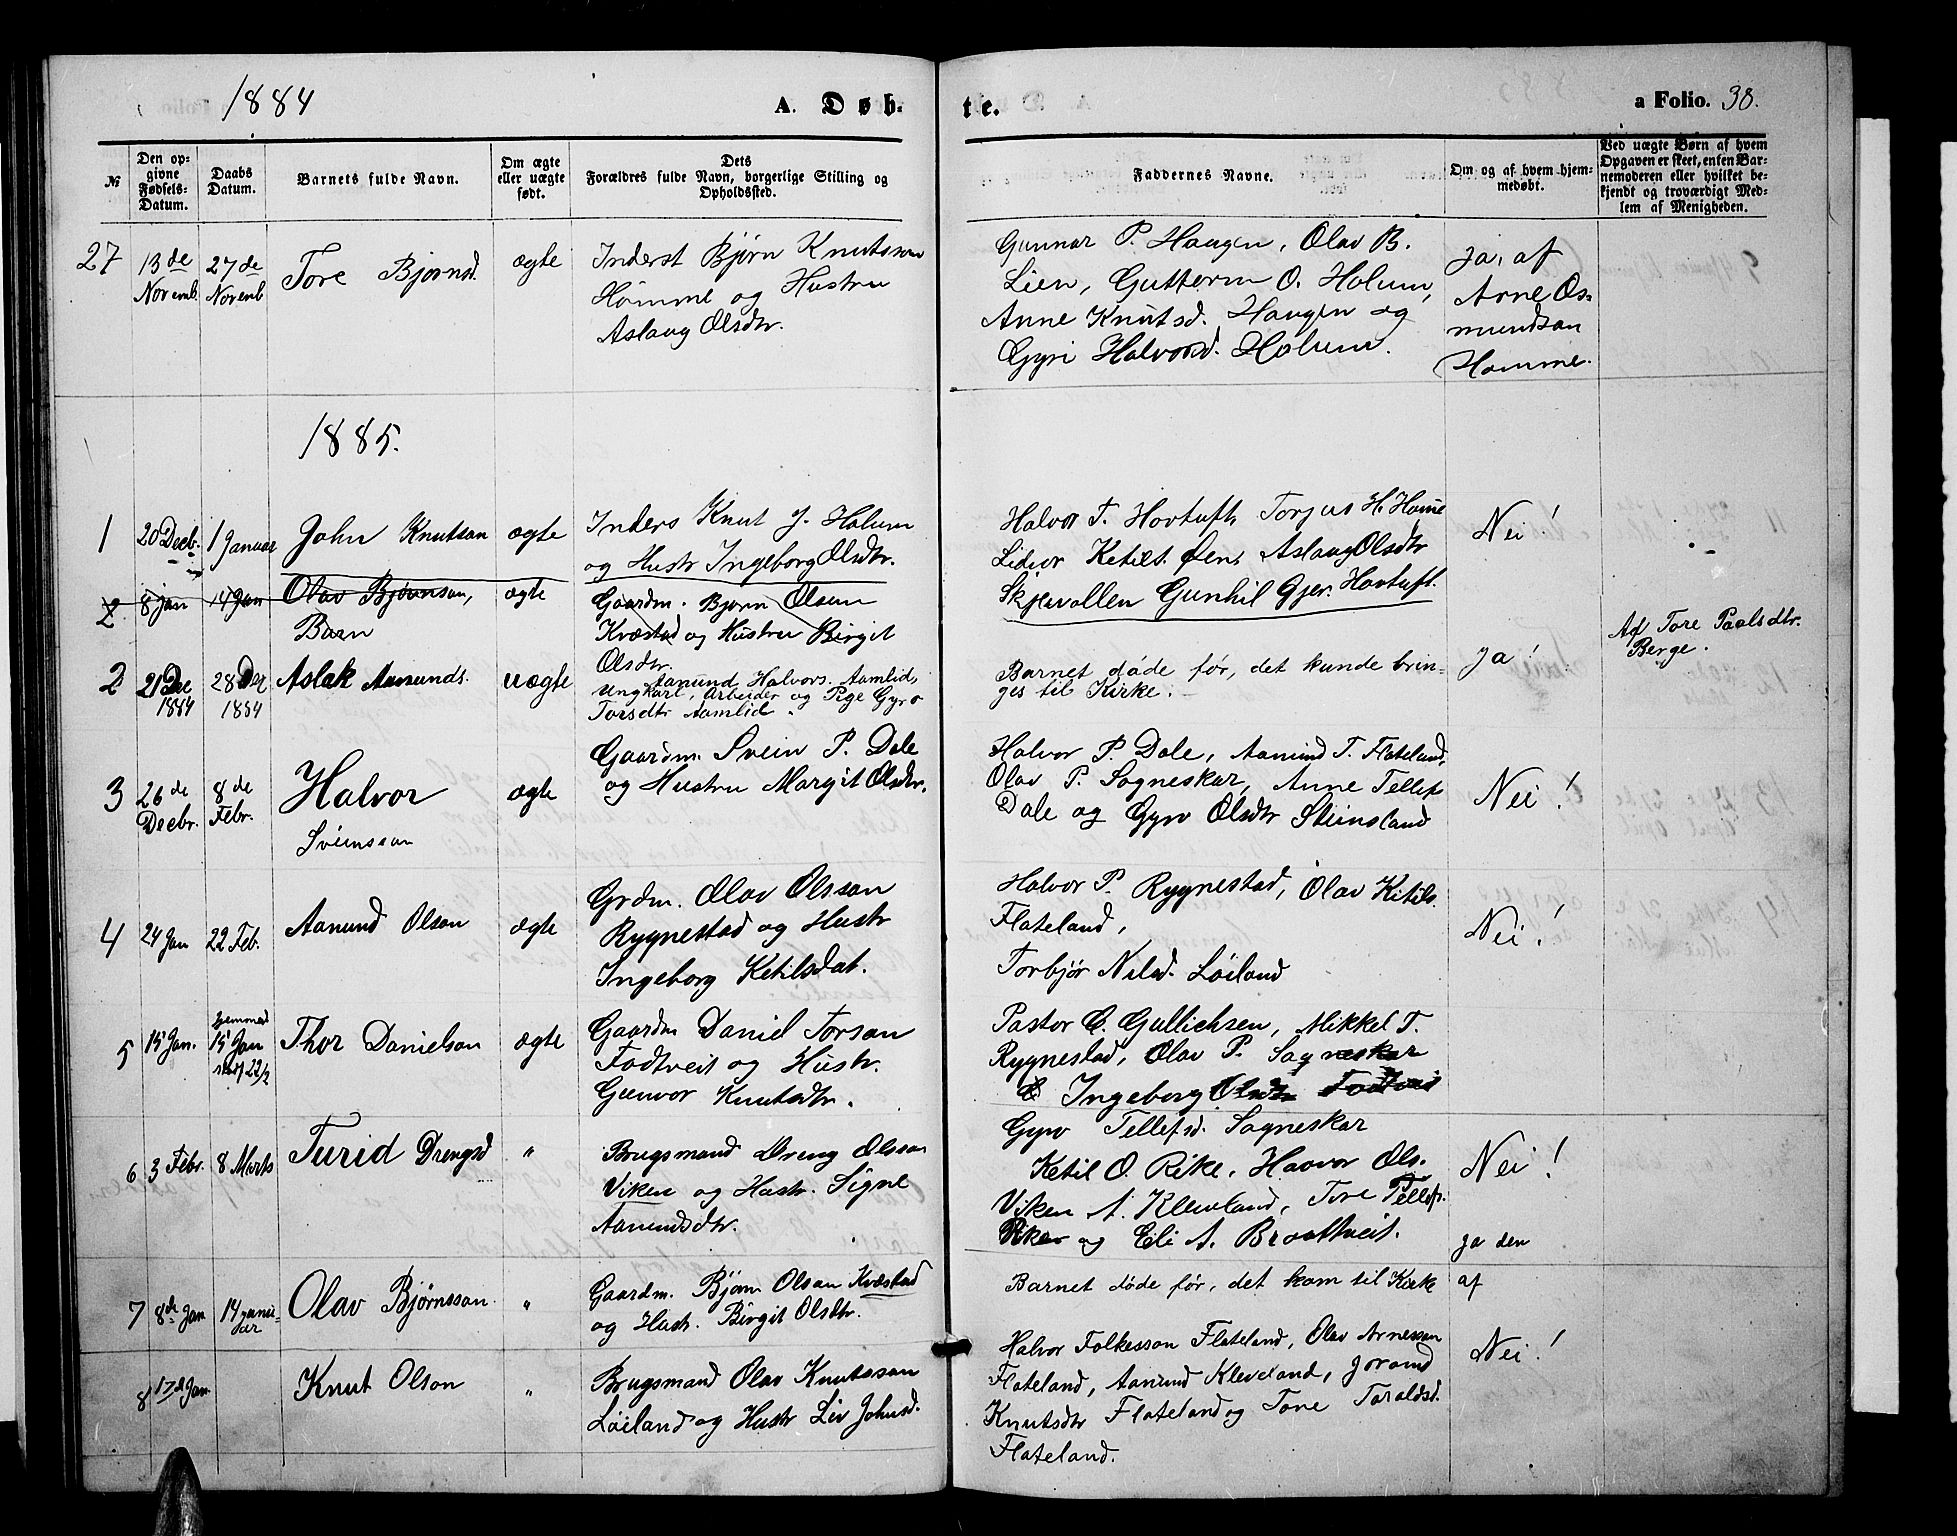 1884
A. Døb-
te.
a Folio. 38.
№
Den opgivne Fødsels-Datum.
Daabs Datum.
Barnets fulde Navn.
Om ægte eller uægte født.
Dets Forældres fulde Navn, borgerlige Stilling og Opholdssted.
Faddernes Navne.
Om og af hvem hjemmedøbt.
Ved uægte Børn af hvem
Opgaven er skeet, enten Bar-
nemoderen eller hvilket be-
kjendt og troværdigt Med-
lem af Menigheden.
27 13de Novemb. 27de Novemb Tore Bjørnsd. ægte
Inderst Bjørn Knutsson
Homme og Hustru
Aslaug Olsdtr.
Gunnar P. Haugen, Olav B.
Lien, Gutterm O. Holum,
Anne Knutsd. Haugen og
Gyri Halvorsd. Holum.
Ja, af
Arne Os-
mundsan
Homme.
1885.
1 20 Decb. 1 Januar John Knutson ægte
Inders Knut J. Holum
og Hustr Ingeborg Olsdtr.
Halvor T. Hovtuft, Torjus H. Home
Lidvor Ketils. Øen, Aslaug Olsdtr
Skjevollen Gunhil Gjer. Hovtuft.
Nei!
2 8 Jan 14 Jan Olav Bjørnson, ægte
Barn
Gaardm. Bjørn Olsen
Kvæstad og Hustru Birgit
Olsdtr.
2 21 Dec 1884 28 Der 1884 Aslak Aamunds. uægte
Aamund Halvors. Aamlid,
Ungkarl, Arbeider og Pige Gyro
Torsdtr Aamlid.
Barnet døde før, det kunde brin-
ges til Kirke.
Ja!
Af Tore Paalsdtr.
Berge.
3 26de Decbr. 8de Febr. Halvor
Sveinsson
ægte
Gaardm. Svein P. Dale
og Hustru Margit Olsdtr.
Halvor P. Dale, Aamund T. Flateland,
Olav P. Sagneskar, Anne Tellefs
Dale og Gyro Olsdtr Steinsland
Nei!
4 24 Jan 22 Feb. Aanund Olson ægte
Grdm. Olav Olsson
Rygnestad og Hustr
Ingeborg Ketilsdat.
Halvor P. Rygnestad, Olav Kitils.
Flateland,
Torbjør Nilsd. Løiland
Nei!
5 15 Jan. hjemmed 15 Jan 22/2 Thor Danielson ægte
Gaardm Daniel Torson
Fodtveit og Hustr.
Gunvor Knutsdtr.
Pastor C. Gullichsen, Mikkel T.
Rygnestad, Olav P. Sagneskar
Ingeborg
Gyro Tellefsd. Sagneskar
6 3 Febr. 8 Marts Turid Drengsd "
Brugsmand Dreng Olsson
Viken og Hustr. Signe
Aanundsdtr.
Ketil O. Rike, Haavor Ols.
Viken A. Kleveland, Tore Tellefs.
Rike og Eli A. Brottveit.
Nei!
7 8de Jan 14 Januar Olav Bjørnsson "
Gaardm. Bjørn Olson Kvæstad
og Hustr. Birgit Olsdtr.
Barnet døde før, det kom til Kirke
ja den
af
8 17d Jan Knut Olson "
Brugsmand Olav Knutsson
Løiland og Hustr Liv Johnsd.
Halvor Folkesson Flateland, Olav Arnesson
Flateland, Aanund Kleveland, Jorand
Knutsdtr Flateland og Tone Taraldsd.
Flateland.
Nei!